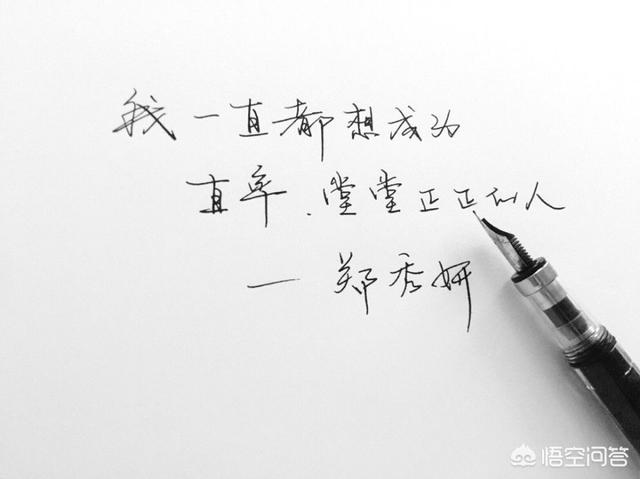 我一直都想成为
直率、堂堂正正的人
— 郑秀妍
悟空问答